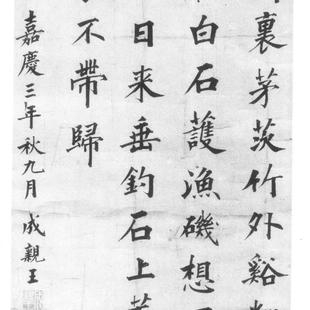 裏茅茨竹外谿
白石護漁磯想
日来垂釣石上
不帶歸
嘉慶三年秋九月成親王